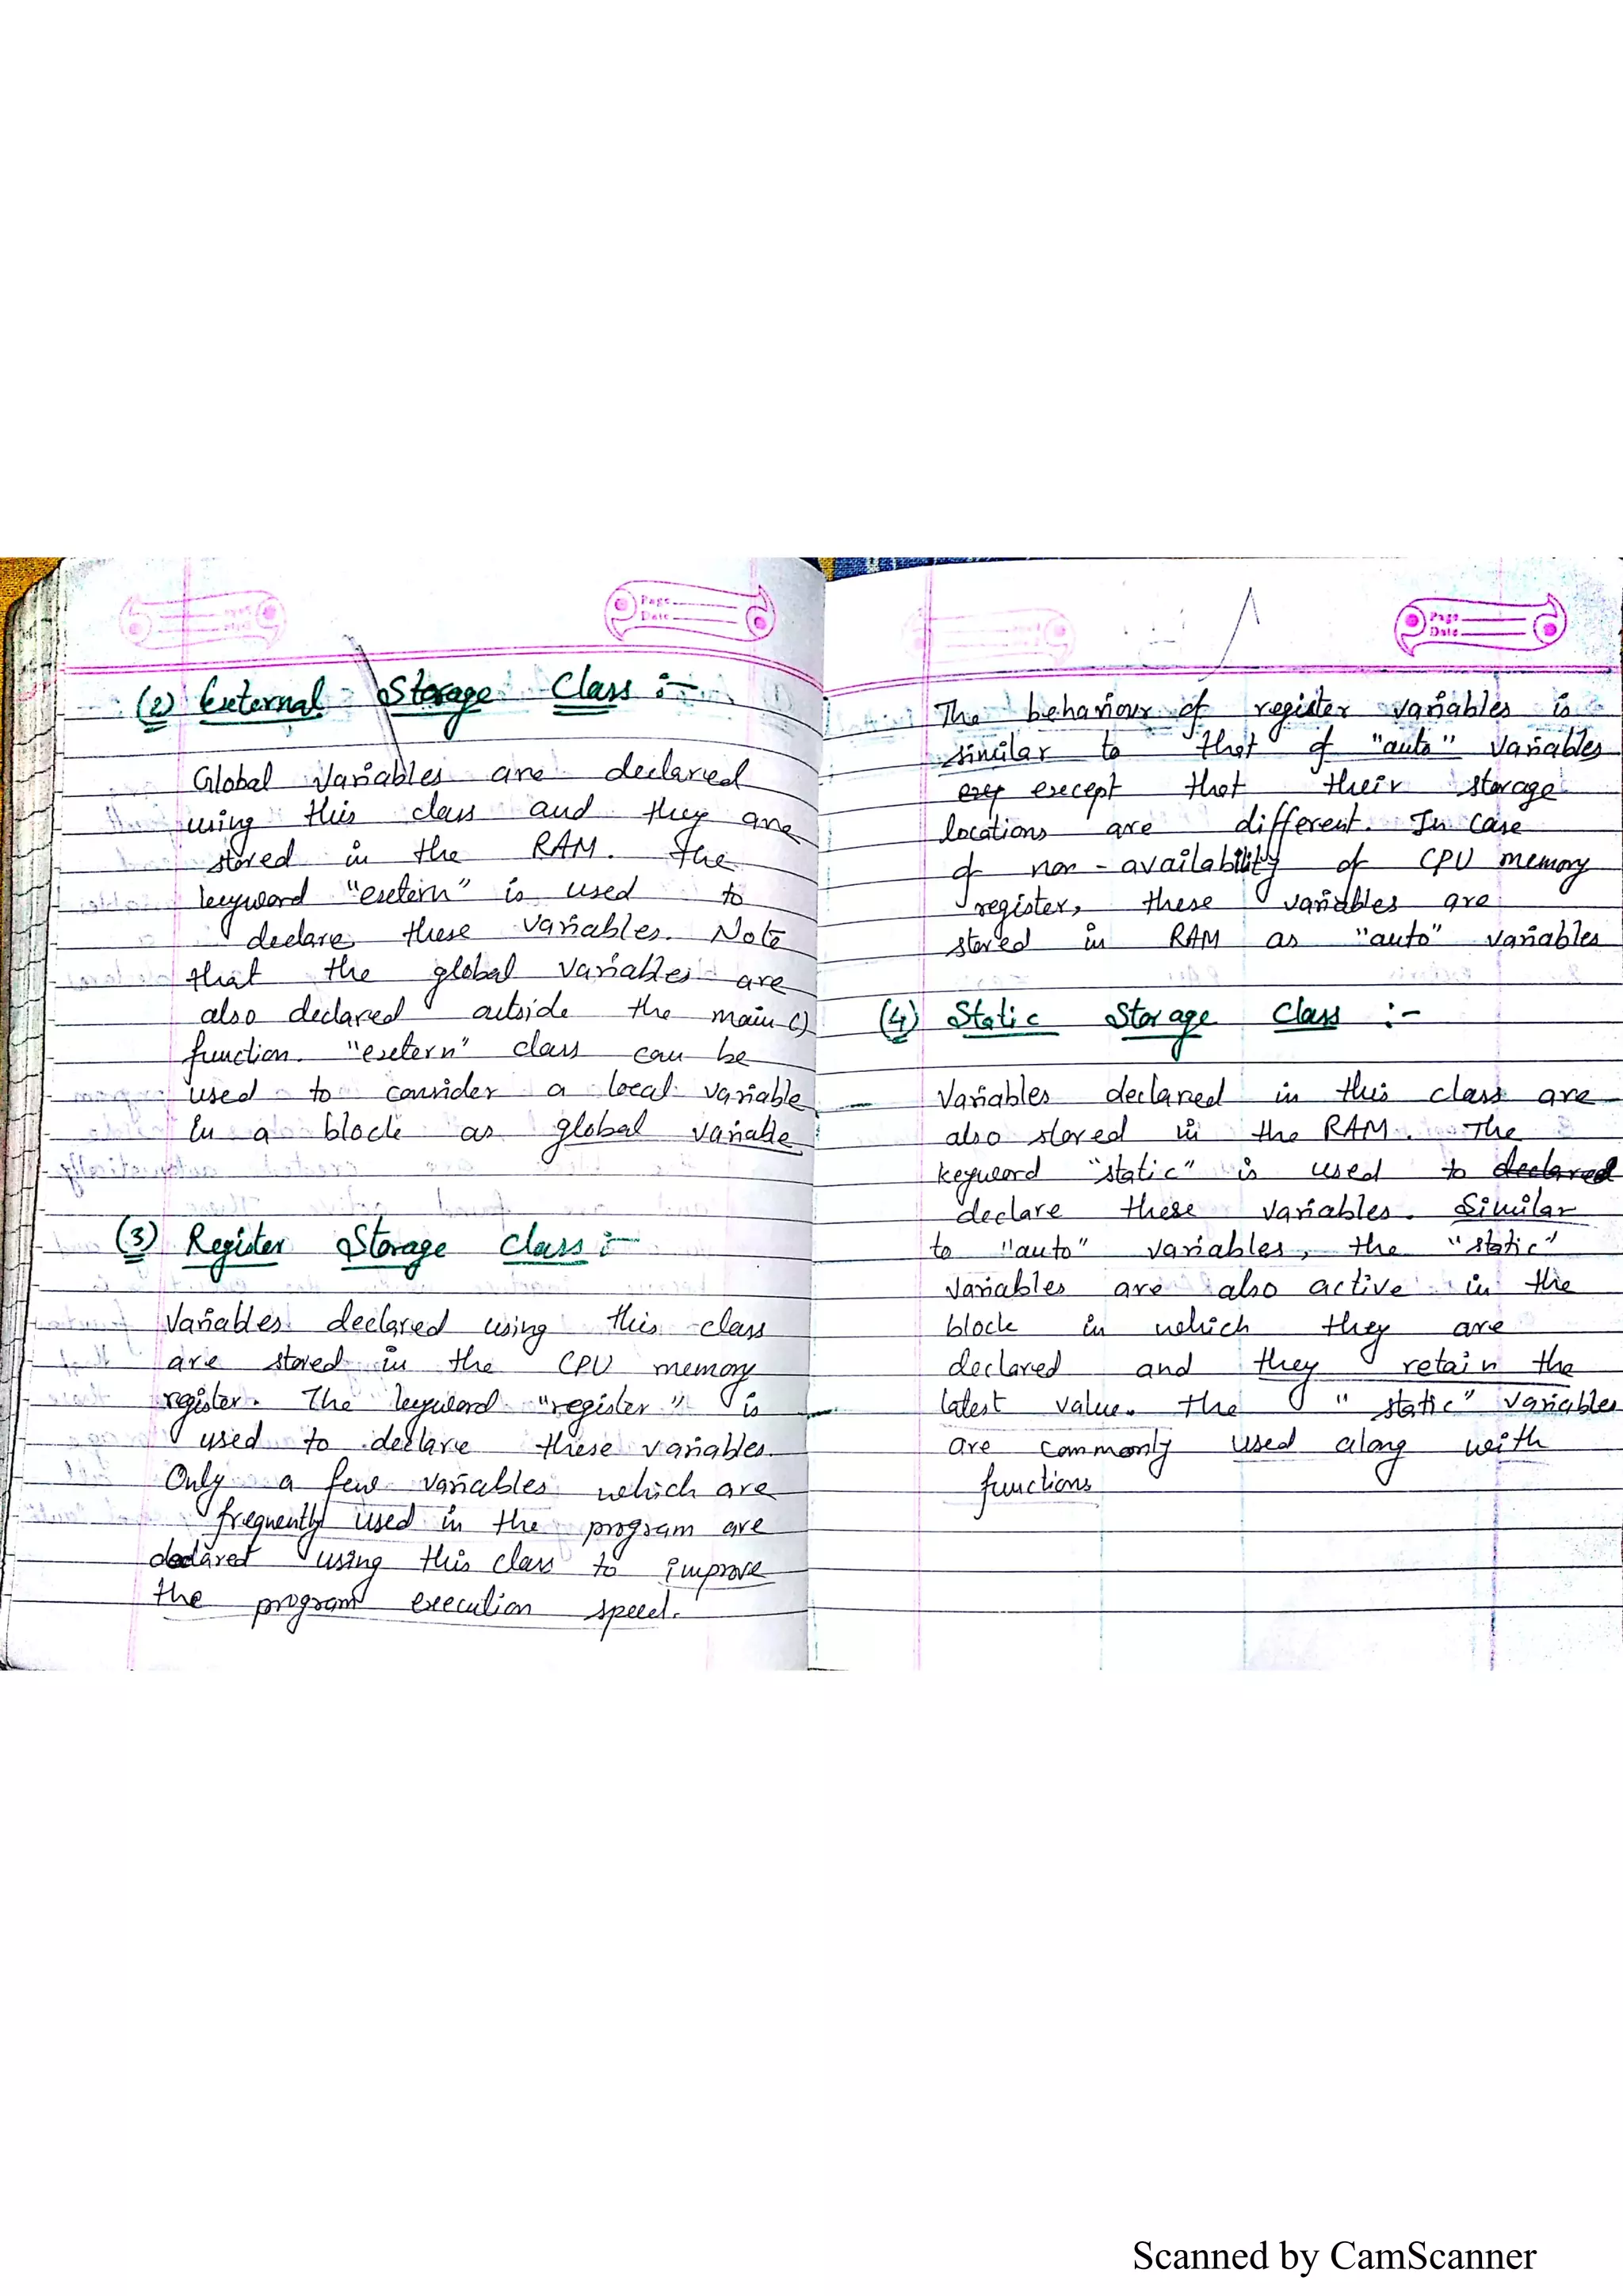 Page
Date
(2) External Storage Class :-
Global Variables are declared
using this class and they are
stored in the RAM. The
keyword "extern" is used to
declare these variables. Note
that the global variables are
also declared outside the main()
function. "extern" class can be
used to consider a local variable
in a block as global variable
(3) Register Storage Class :-
Variables declared using this class
are stored in the CPU memory
register. The keyword "register" is
used to declare these variables.
Only a few variables which are
frequently used in the program are
declared using this class to improve
the program execution speed.
Page
Date
The behaviour of register variables is
similar to that of "auto" variables
except that their storage
locations are different. In case
of non-availability of CPU memory
register, these variables are
stored in RAM as "auto" variables
(4) Static Storage Class :-
Variables declared in this class are
also stored in the RAM. The
keyword "static" is used to declared
declare these variables. Similar
to "auto" variables, the "static"
variables are also active in the
block in which they are
declared and they retain the
latest value. The "static" variables
are commonly used along with
functions
Scanned by CamScanner